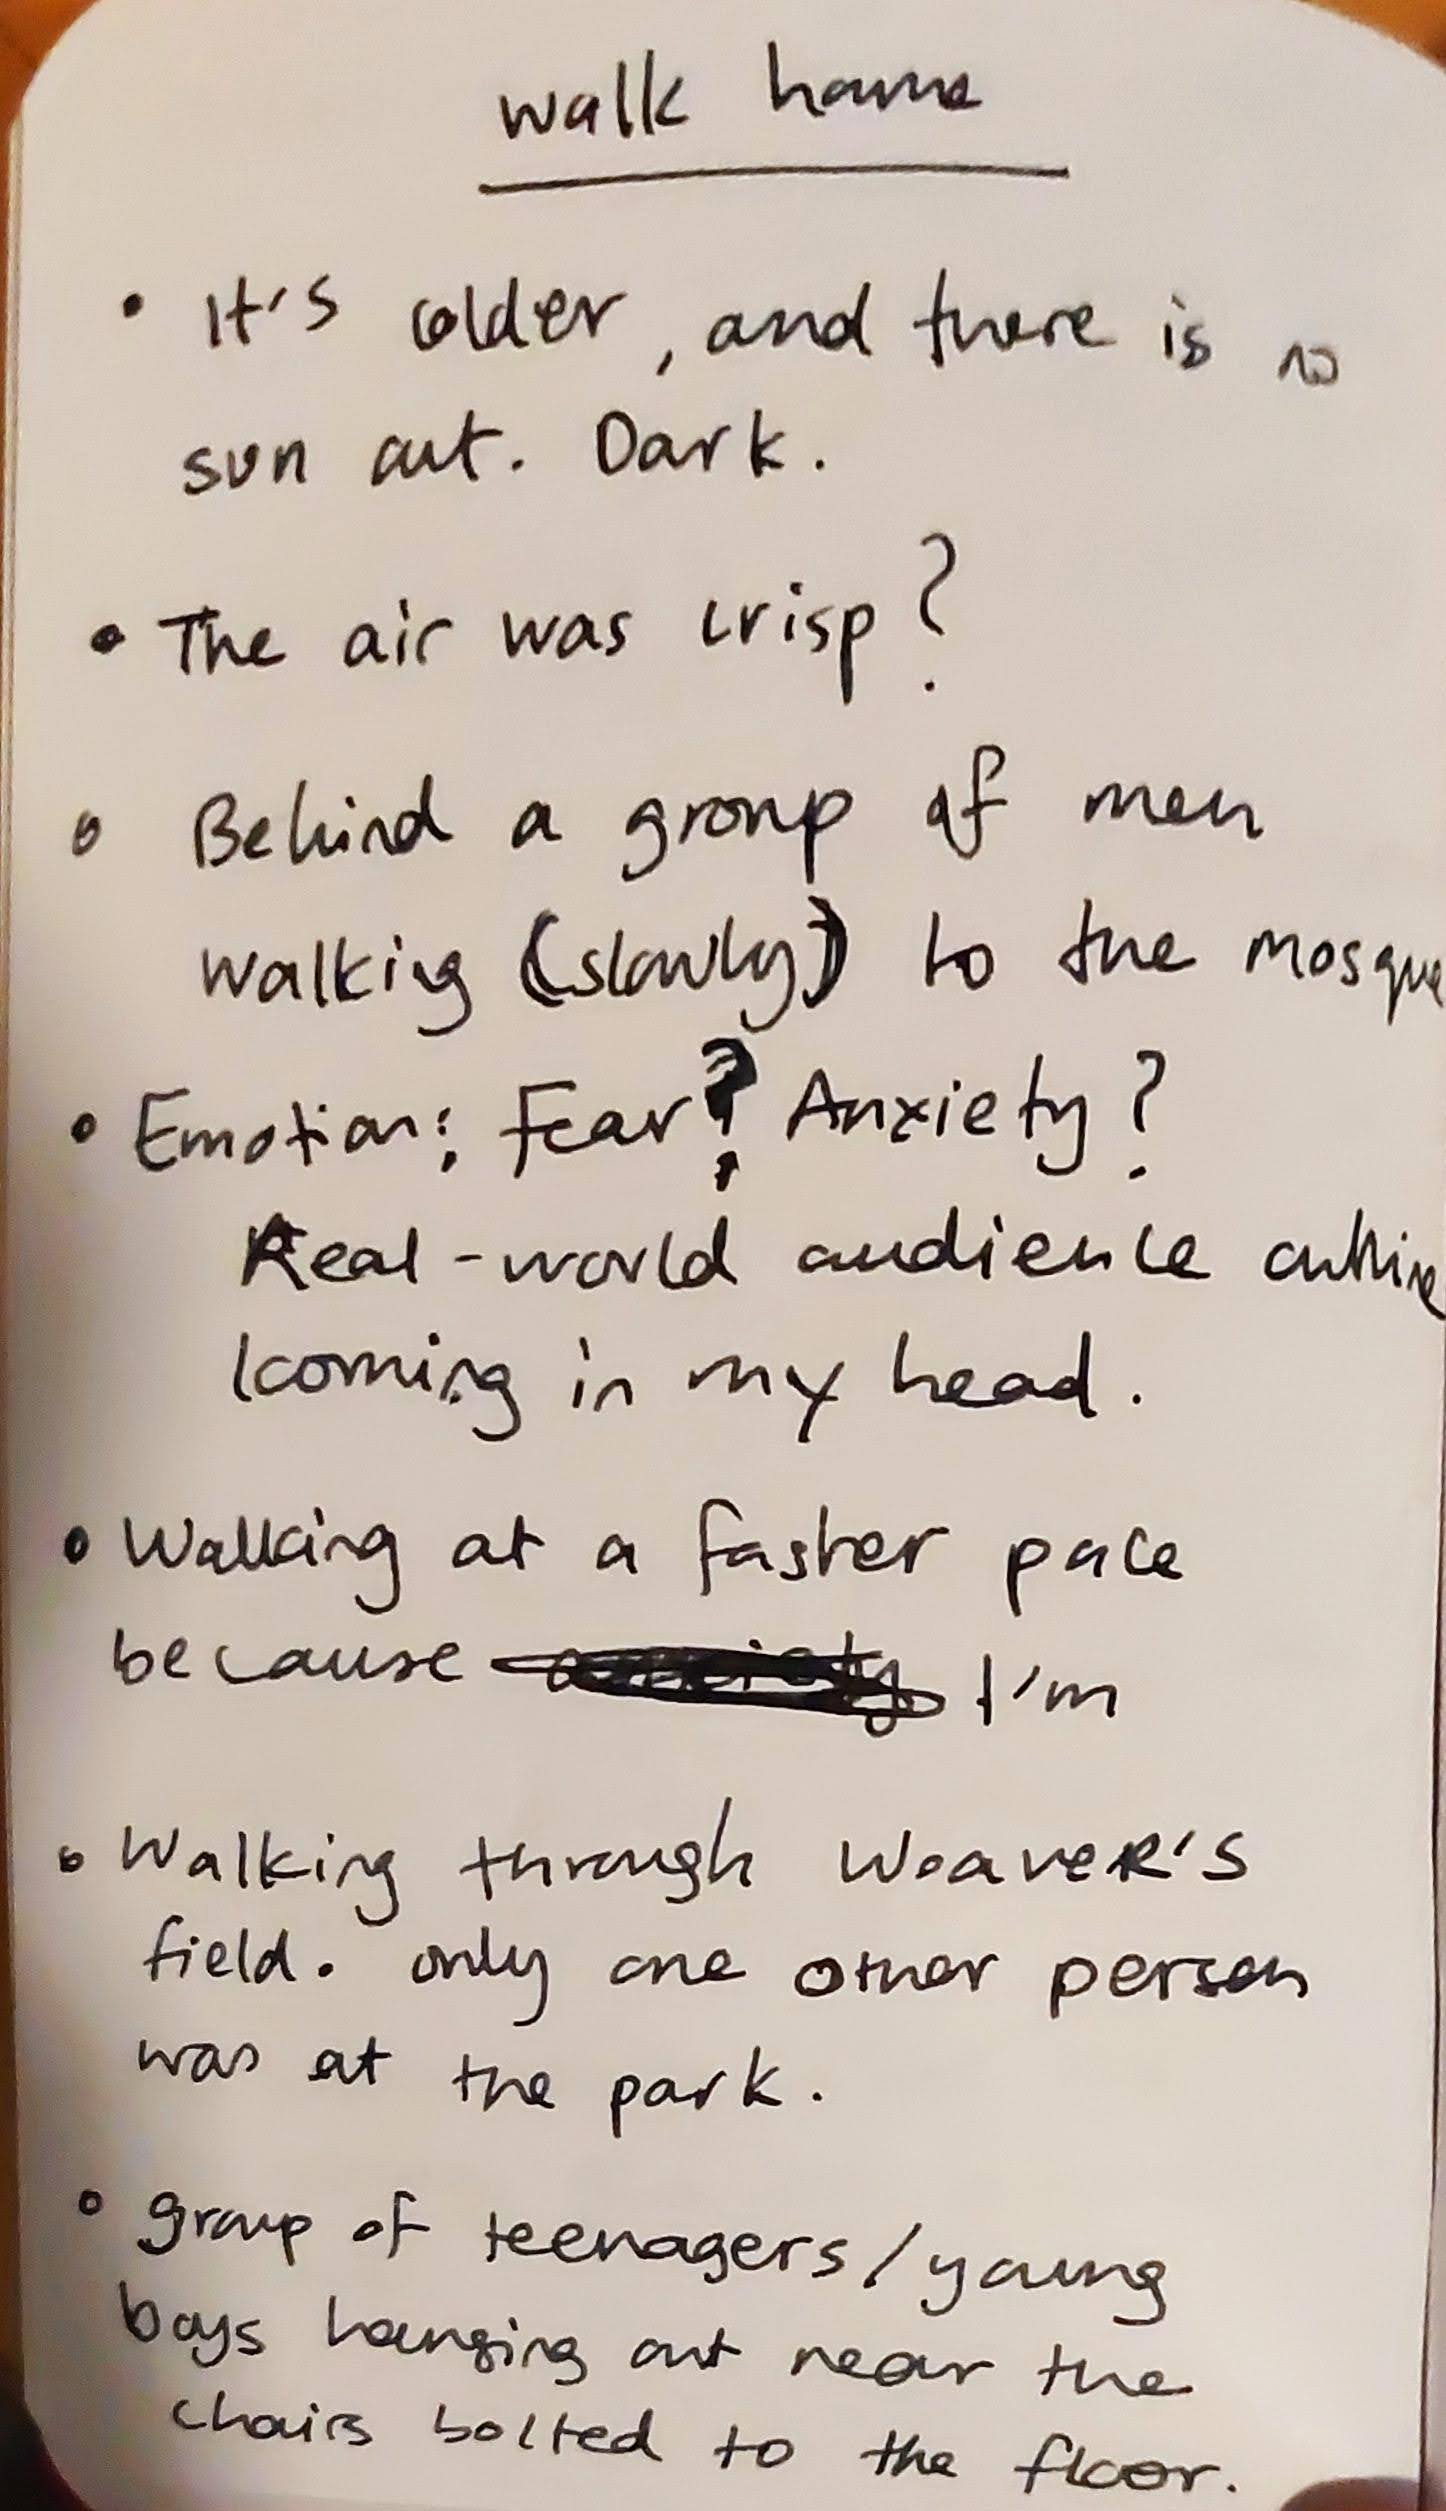 walk home
• It's colder, and there is no
sun out. Dark.
• The air was crisp?
• Behind a group of men
walking (slowly) to the mosque
• Emotion: Fear? Anxiety?
Real-world audience
coming in my head.
• Walking at a faster pace
because anxiety I'm
• Walking through Weaver's
field. only one other person
was at the park.
• group of teenagers/young
boys hanging out near the
chairs bolted to the floor.